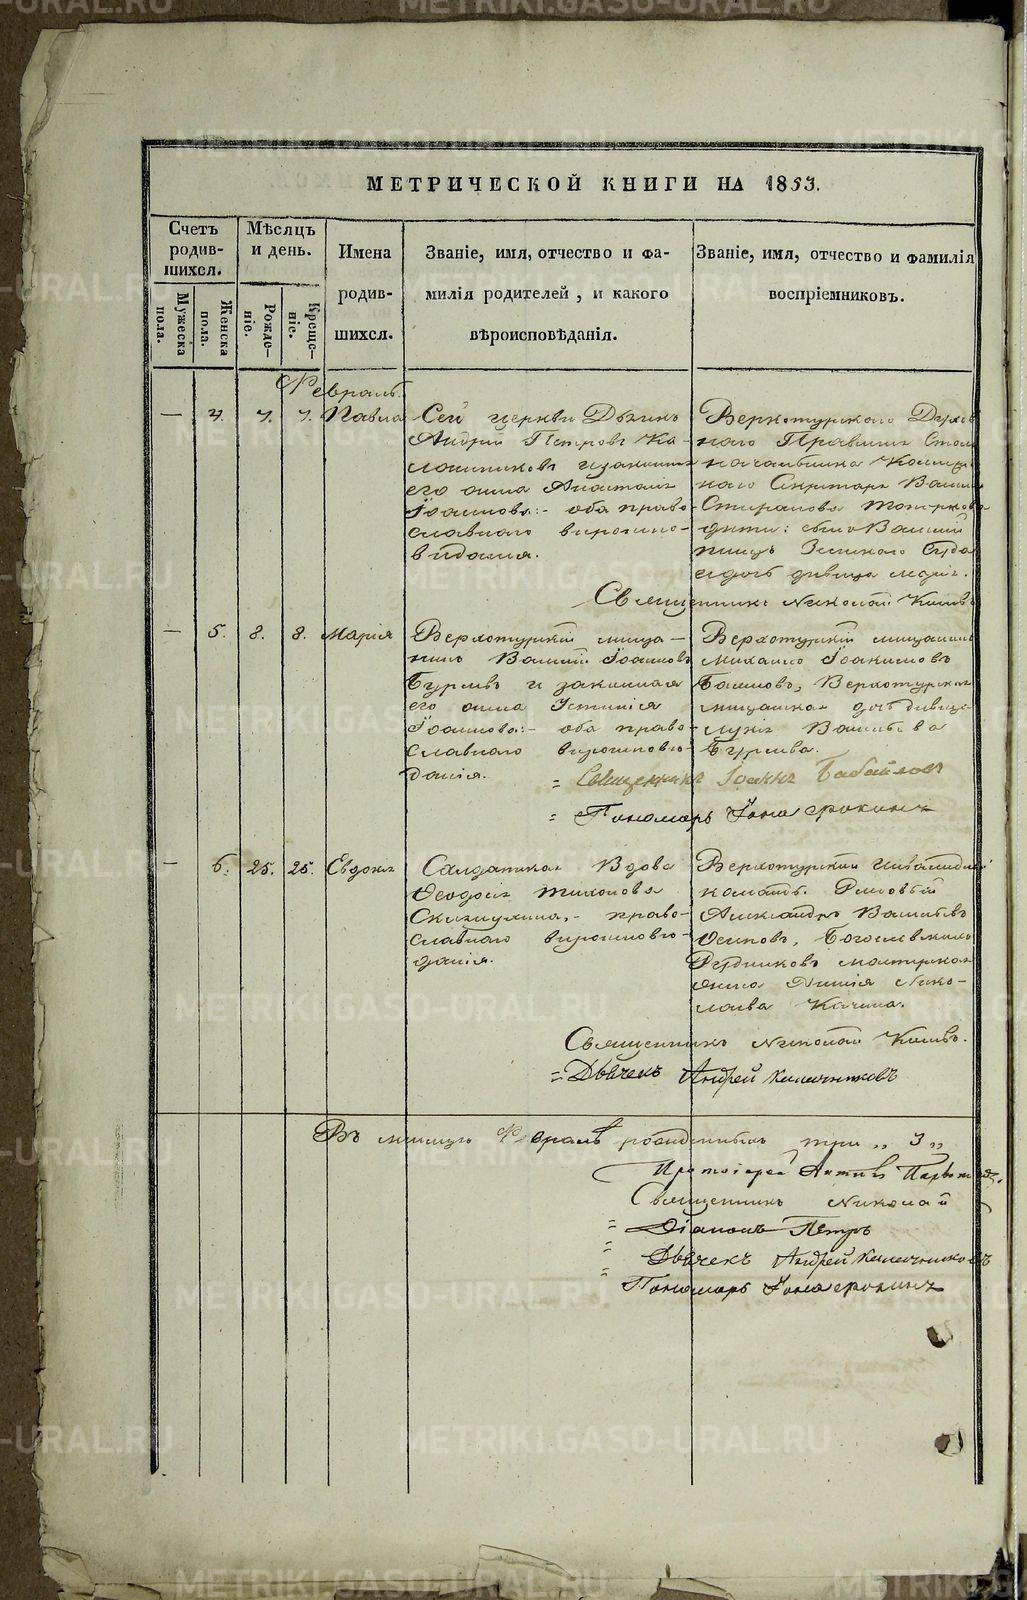 МЕТРИЧЕСКОЙ КНИГИ НА 1853.
Счетъ родив-шихся.
Мужеска пола.
Женска пола.
Мѣсяцъ и день.
Рожде-ніе.
Креще-ніе.
Имена родив-шихся.
Званіе, имя, отчество и фа-
милія родителей, и какого
вѣроисповѣданія.
Званіе, имя, отчество и фамилія
воспріемниковъ.
Февраль
— 4. 7. 7. Павла
Сей церкви Дьячекъ
Андрей Петровъ Ка-
лашниковъ и законная
его жена Анастасія
Іоаннова:- оба право-
славнаго вѣроиспо-
вѣданія.
Верхотурскаго Духов
наго Правленія Стол
начальника
наго Секретаря Василія
Стефанова Топоркова
дѣти: сынъ Василій
писецъ Земскаго Суда
и дочь дѣвица Марія.
Священникъ Николай
— 5. 8. 8. Марія
Верхотурскій мѣща-
нинъ Василій Іоанновъ
Бурлевъ и законная
его жена Устинія
Іоаннова:- оба право-
славнаго вѣроисповѣ-
данія.
Верхотурскій мѣщанинъ
Михаилъ Іоакимовъ
Верхотурская
мѣщанская дочь дѣвица
Васильева
Бурлева.
= Священникъ Іоаннъ Бабайловъ
= Пономарь Іона
— 6. 25. 25. Евдокія
Салдатская Вдова
Ѳеодосія Тихонова
право-
славнаго вѣроисповѣ-
данія.
Верхотурской Инвалидной
команды Рядовый
Александръ Васильевъ
Осиповъ, Богословскихъ
Рудниковъ мастерская
жена Лидія Нико-
лаева Качина.
Священникъ Николай
= Дьячекъ Андрей Калашниковъ
Въ мѣсяцѣ Февралѣ рожденныхъ три „ 3 „
Протоіерей
Священникъ Николай
= Діаконъ Петръ
= Дьячекъ Андрей Калашниковъ
= Пономарь Іона
METRIKI.GASO-URAL.RU